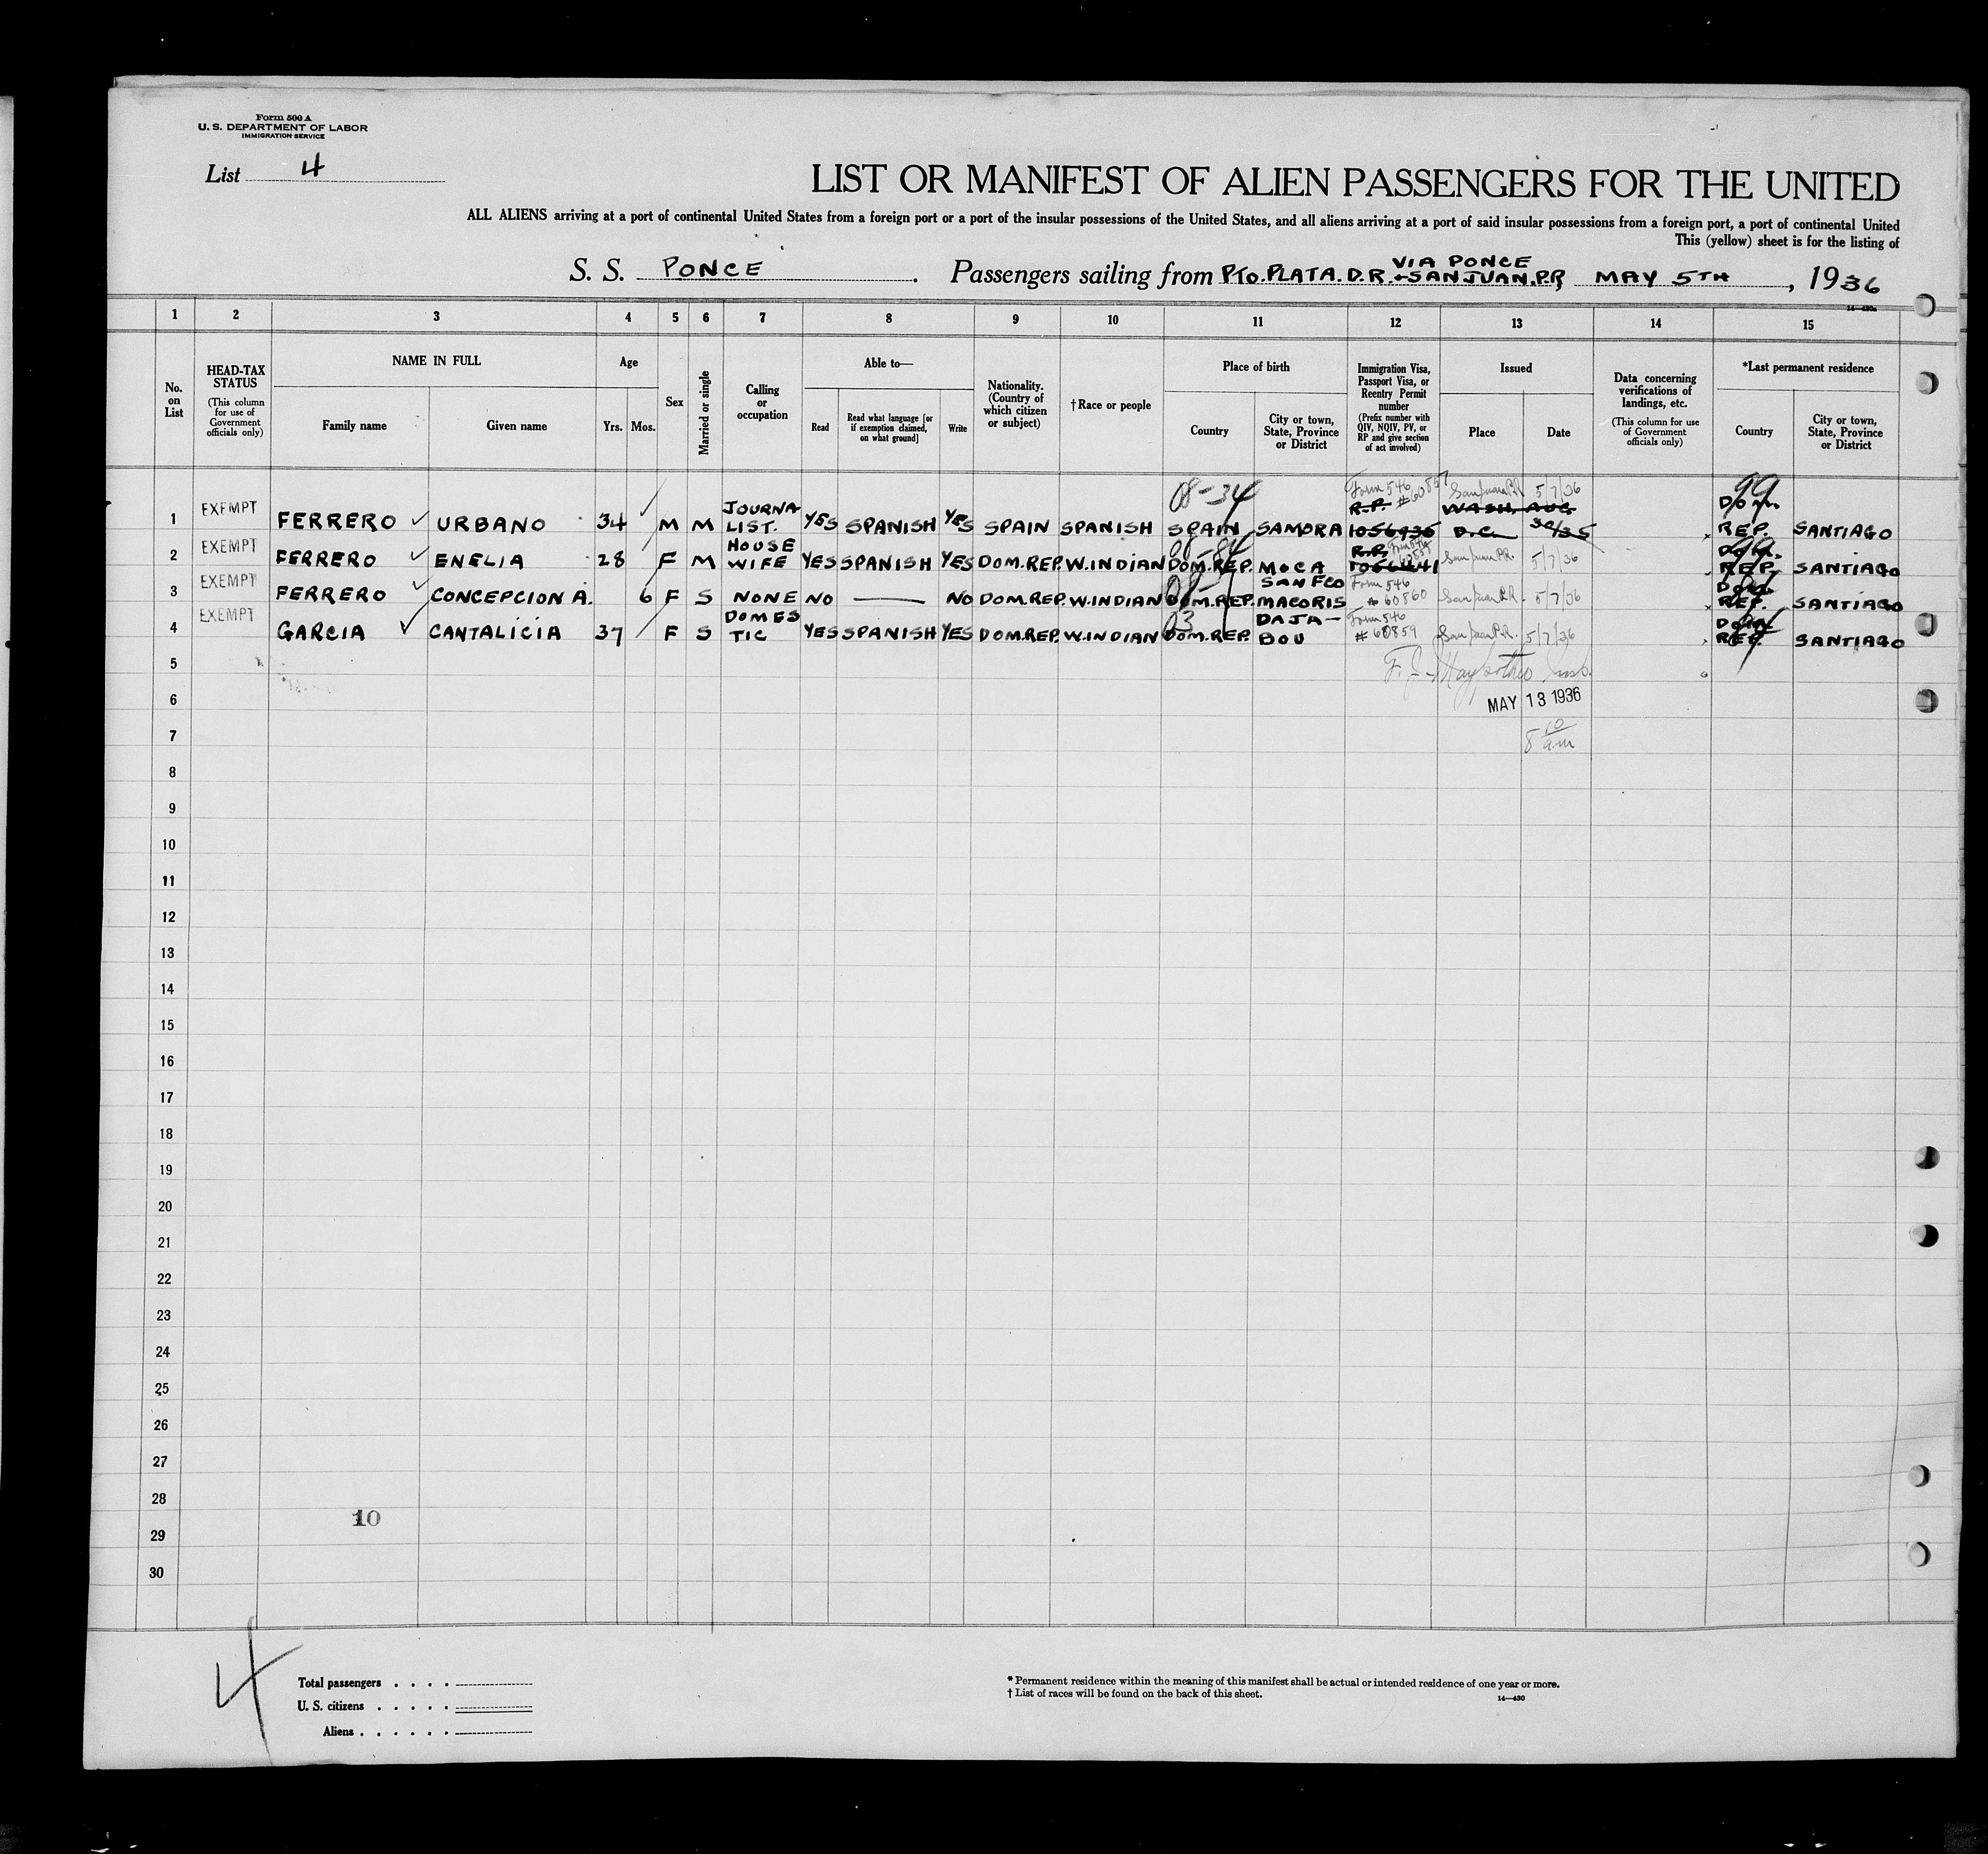 Form 500 A
U. S. DEPARTMENT OF LABOR
IMMIGRATION SERVICE
List 4
LIST OR MANIFEST OF ALIEN PASSENGERS FOR THE UNITED
ALL ALIENS arriving at a port of continental United States from a foreign port or a port of the insular possessions of the United States, and all aliens arriving at a port of said insular possessions from a foreign port, a port of continental United
This (yellow) sheet is for the listing of
VIA PONCE
S. S. PONCE. Passengers sailing from PTO. PLATA. D.R. + SAN JUAN. P.R, MAY 5TH, 1936
14—430a
1 2 3 4 5 6 7 8 9 10 11 12 13 14 15
No. on List
HEAD-TAX STATUS
(This column for use of Government officials only)
NAME IN FULL
Family name Given name
Age
Yrs. Mos.
Sex
Married or single
Calling or occupation
Able to—
Read
Read what language [or if exemption claimed, on what ground]
Write
Nationality. (Country of which citizen or subject)
† Race or people
Place of birth
Country
City or town, State, Province or District
Immigration Visa, Passport Visa, or Reentry Permit number
(Prefix number with QIV, NQIV, PV, or RP and give section of act involved)
Issued
Place Date
Data concerning verifications of landings, etc.
(This column for use of Government officials only)
*Last permanent residence
Country
City or town, State, Province or District
08-34 Form 546 #60857 San Juan P.R. 5/7/36 99
1 EXEMPT FERRERO ✓ URBANO 34 M M JOURNALIST. YES SPANISH YES SPAIN SPANISH SPAIN SAMORA R.P. 1056936 WASH. AUG. D.C. 30/35 DOM. REP. SANTIAGO
2 EXEMPT FERRERO ✓ ENELIA 28 F M HOUSE WIFE YES SPANISH YES DOM.REP. W.INDIAN DOM.REP. MOCA R.P. Form 546 San Juan P.R. 5/7/36 DOM. REP. SANTIAGO
3 EXEMPT FERRERO ✓ CONCEPCION A. 6 F S NONE NO — NO DOM.REP. W.INDIAN DOM.REP. SAN FCO MACORIS Form 546 # 60860 San Juan P.R. 5/7/36 DOM. REP. SANTIAGO
4 EXEMPT GARCIA ✓ CANTALICIA 37 F S DOMES TIC YES SPANISH YES DOM.REP. W.INDIAN DOM.REP. DAJA- BOU Form 546 # 60859 San Juan P.R. 5/7/36 DOM. REP. SANTIAGO
5
6 MAY 13 1936
7 8 10 a.m
8
9
10
11
12
13
14
15
16
17
18
19
20
21
22
23
24
25
26
27
28
10
29
30
4
Total passengers
U. S. citizens
Aliens
* Permanent residence within the meaning of this manifest shall be actual or intended residence of one year or more.
† List of races will be found on the back of this sheet.
14—430